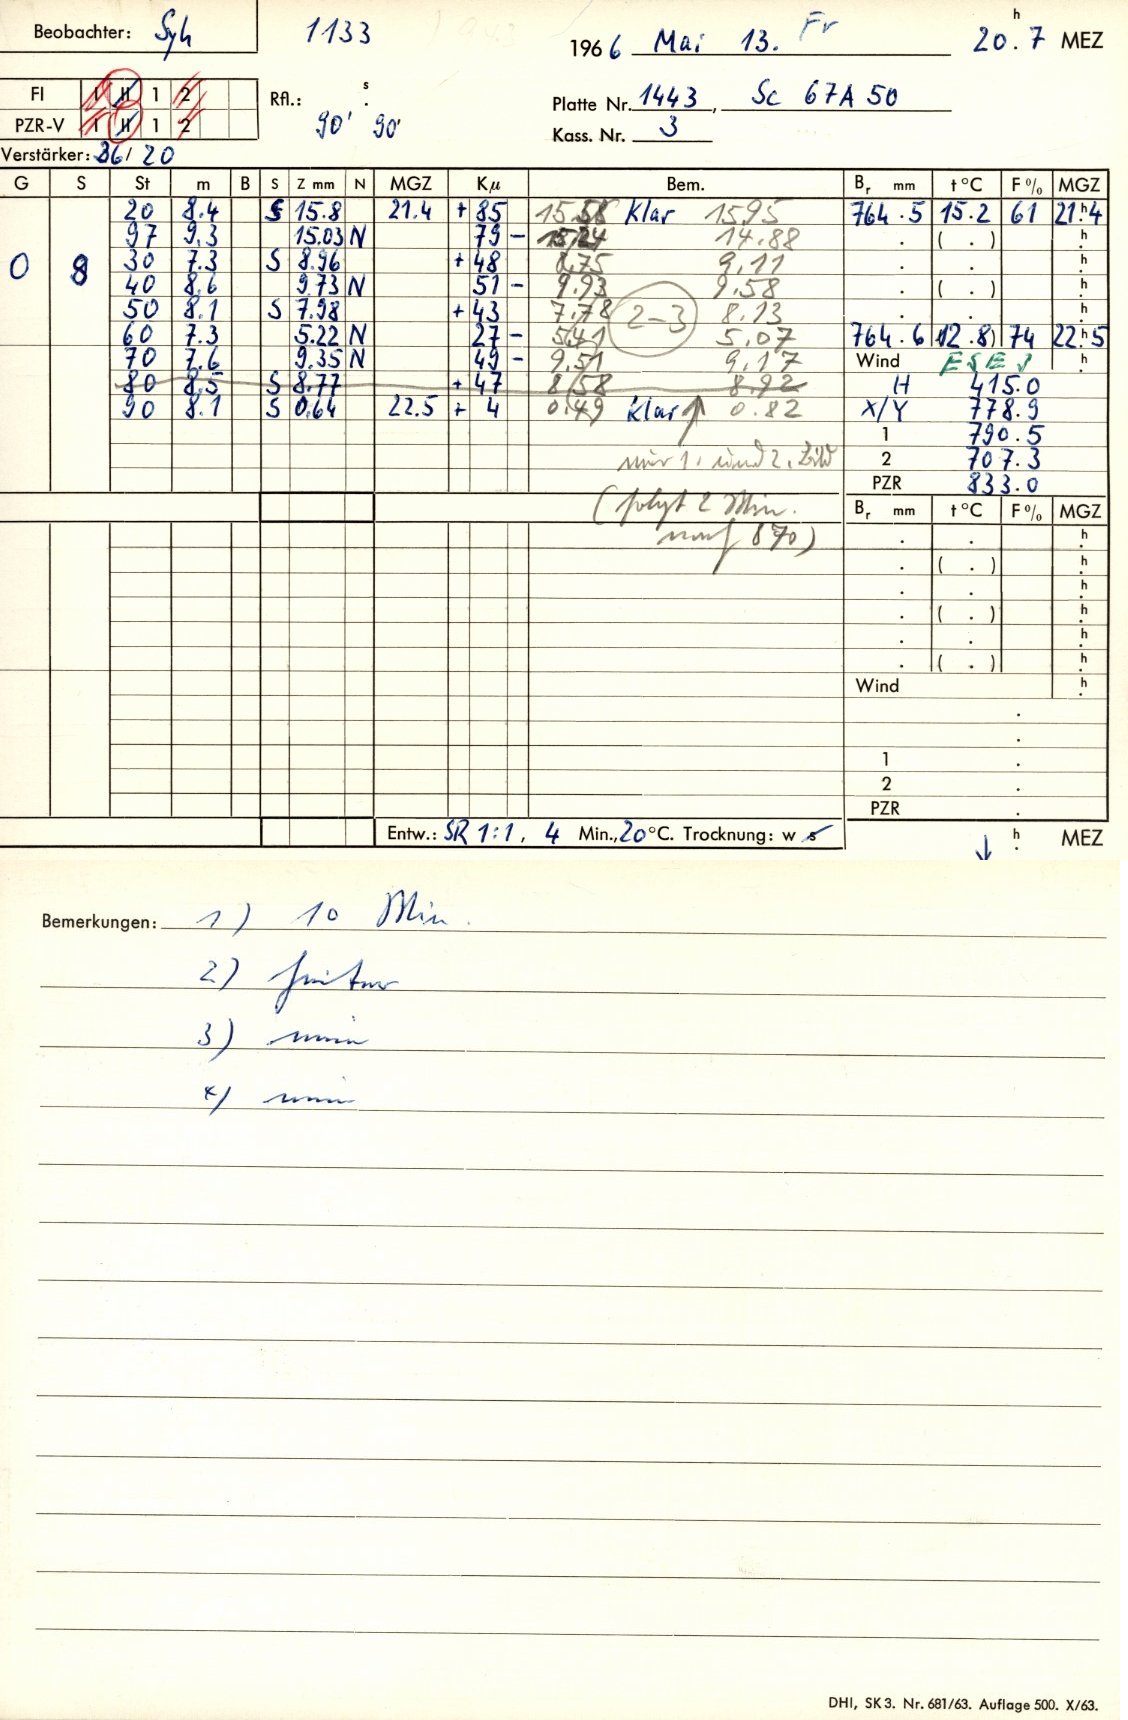 Beobachter: Syh 1133 1966 Mai 13. Fr 20.7 h MEZ
FI I II 1 2 Rfl.: s
PZR-V I II 1 2 90' 90'
Platte Nr. 1443, Sc 67A 50
Kass. Nr. 3
Verstärker: 36/20
G S St m B S Z mm N MGZ Kμ Bem. Br mm t °C F % MGZ
20 8.4 S 15.8 21.4 + 85 15.58 Klar 15.95 764.5 15.2 61 21h4
97 9.3 15.03 N 79 - 15.24 14.88 . ( . ) h
0 8 30 7.3 S 8.96 + 48 8.75 9.11 . . h
40 8.6 9.73 N 51 - 9.93 9.58 . ( . ) h
50 8.1 S 7.98 + 43 7.78 2-3 8.13 . . h
60 7.3 5.22 N 27 - 5.41 5.07 764.6 (12.8) 74 22h5
70 7.6 9.35 N 49 - 9.51 9.17 Wind ESE 3 h
80 8.5 S 8.77 + 47 8.58 8.92 H 415.0
90 8.1 S 0.64 22.5 + 4 0.49 Klar 0.82 X/Y 778.9
1 790.5
nur 1. und 2. Bild 2 707.3
PZR 833.0
(folgt 2 Min. Br mm t °C F % MGZ
nach 870) . . h
. ( . ) h
. . h
. ( . ) h
. . h
. ( . ) h
Wind h
.
.
1 .
2 .
PZR .
Entw.: SR 1:1, 4 Min., 20 °C. Trocknung: w s h MEZ
Bemerkungen: 1) 10 Min.
2) heiter
3) nein
4) nein
DHI, SK 3. Nr. 681/63. Auflage 500. X/63.